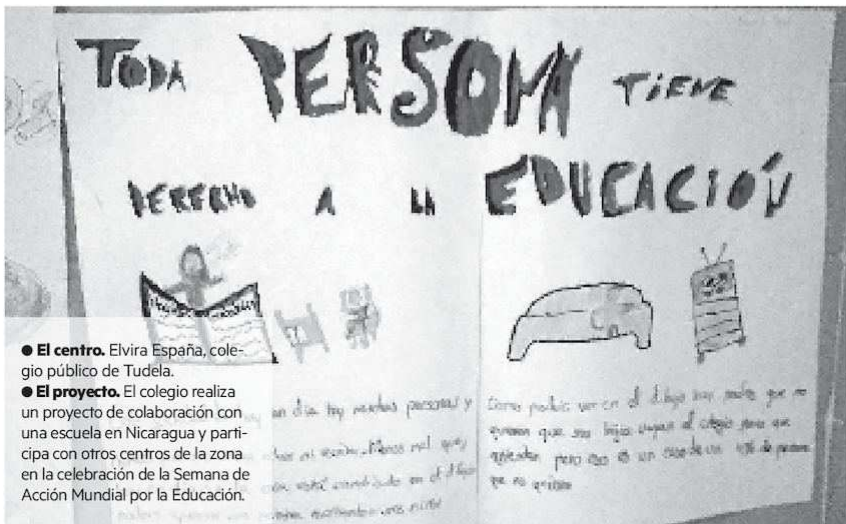 TODA PERSONA TIENE
DERECHO A LA EDUCACIÓN
● El centro. Elvira España, cole-
gio público de Tudela.
● El proyecto. El colegio realiza
un proyecto de colaboración con
una escuela en Nicaragua y parti-
cipa con otros centros de la zona
en la celebración de la Semana de
Acción Mundial por la Educación.
un día hay muchas personas y
Menos mal que
en el dibujo
Como podéis ver en el dibujo hay padres que no
quieren que sus hijos vayan al colegio para que
pero eso es un de personas
que no quieren